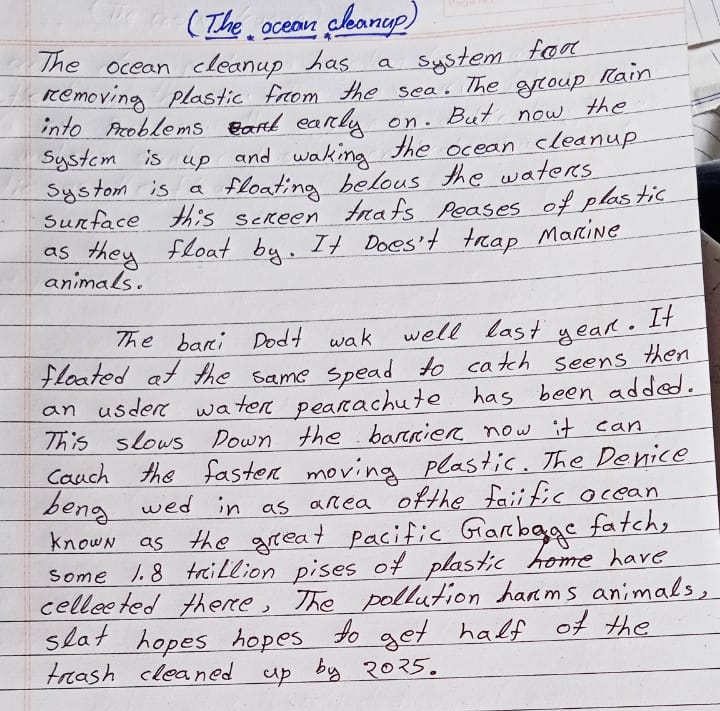 (The ocean cleanup)
The ocean cleanup has a system for
removing plastic from the sea. The group Rain
into Problems earl early on. But now the
system is up and waking the ocean cleanup
systom is a floating belous the waters
surface this screen trafs peases of plastic
as they float by. It Does't trap Marine
animals.
The bari Dodt wak well last year. It
floated at the same spead to catch seens then
an usder water pearachute has been added.
This slows Down the barrier now it can
cauch the faster moving plastic. The Denice
beng wed in as area ofthe faiific ocean
known as the great pacific Garbage fatch,
some 1.8 trillion pises of plastic home have
celleeted there, The pollution harms animals,
slat hopes hopes to get half of the
trash cleaned up by 2025.